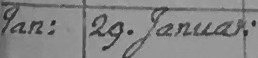 Jan: 29. Januar: